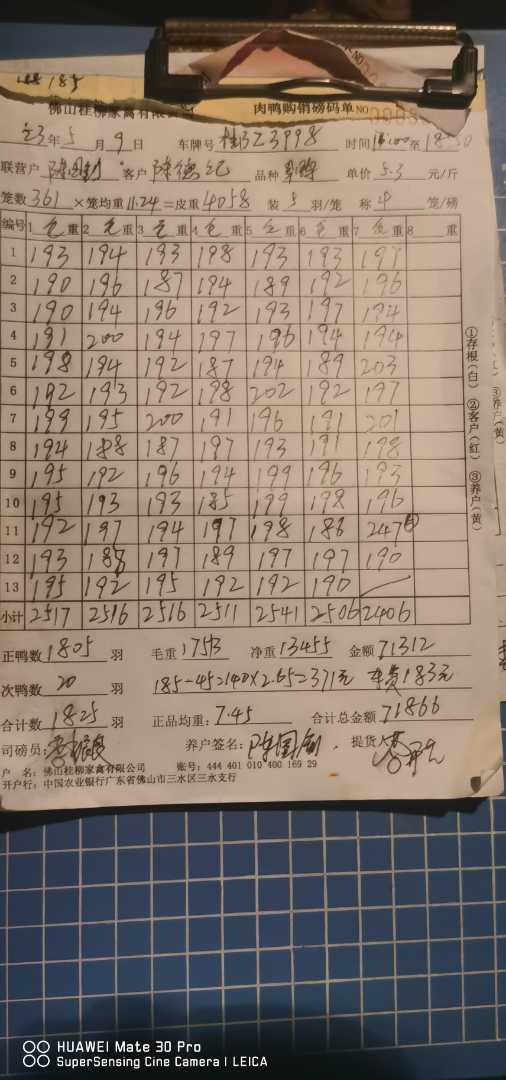 185
佛山桂柳家禽有限公司 肉鸭购销磅码单 NO
23年5月9日 车牌号 桂BZ3998 时间16:00至18:30
联营户 客户 陈德记 品种 单价5.3元/斤
笼数361×笼均重11.24=皮重4058 装5羽/笼 称4笼/磅
编号 1毛重 2毛重 3毛重 4毛重 5毛重 6毛重 7毛重 8 重
1 193 194 193 198 193 193 197
2 190 196 187 194 189 192 196
3 190 194 196 192 193 197 194
4 191 200 194 197 196 194 194
5 198 194 192 187 194 189 203
6 192 193 192 198 202 192 197
7 199 195 200 91 196 191 201
8 194 188 187 197 193 191 198
9 195 192 196 194 199 196 193
10 195 193 193 185 199 198 196
11 192 197 194 197 198 186 247
12 193 188 197 189 197 197 190
13 195 192 195 192 192 190
小计 2517 2516 2516 2511 2541 2506 2406
①存根(白) ②客户(红) ③养户(黄)
正鸭数1805羽 毛重17513 净重13455 金额71312
次鸭数20羽 185-45=140×2.65=371元 车费183元
合计数1825羽 正品均重:7.45 合计总金额71866
司磅员: 养户签名: 提货人
户 名: 佛山桂柳家禽有限公司 账号: 444 401 010 400 169 29
开户行: 中国农业银行广东省佛山市三水区三水支行
HUAWEI Mate 30 Pro
SuperSensing Cine Camera | LEICA